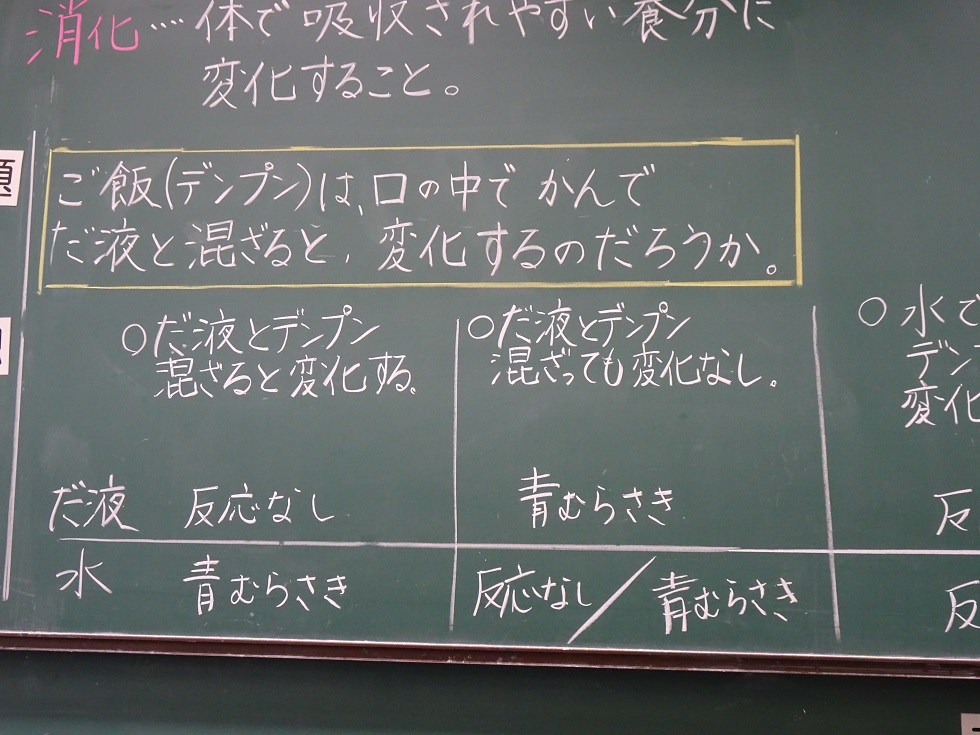 消化‥‥体で吸収されやすい養分に
変化すること。
題
ご飯(デンプン)は、口の中でかんで
だ液と混ざると、変化するのだろうか。
○だ液とデンプン
混ざると変化する。
○だ液とデンプン
混ざっても変化なし。
○水で
デン
変化
だ液 反応なし 青むらさき 反
水 青むらさき 反応なし/青むらさき 反